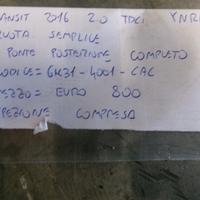 ANSIT 2016 2.0 TDCI YNR
UOTA SEMPLICE
PONTE POSTERIORE COMPLETO
ODICE= GK31-4001-CAC
EZZO= EURO 800
PEDIZIONE COMPRESA